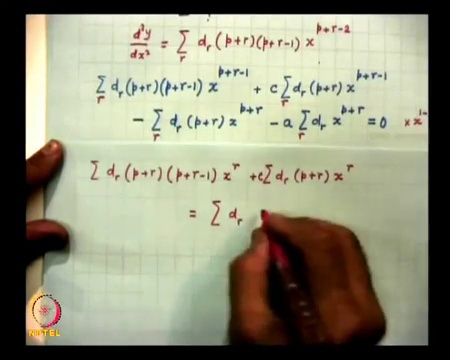 d²y/dx² = Σ_r d_r (p+r)(p+r-1) x^{p+r-2}
Σ_r d_r (p+r)(p+r-1) x^{p+r-1} + c Σ_r d_r (p+r) x^{p+r-1}
- Σ_r d_r (p+r) x^{p+r} - a Σ_r d_r x^{p+r} = 0 × x^{1-
Σ d_r (p+r)(p+r-1) x^r + c Σ d_r (p+r) x^r
= Σ d_r
NPTEL